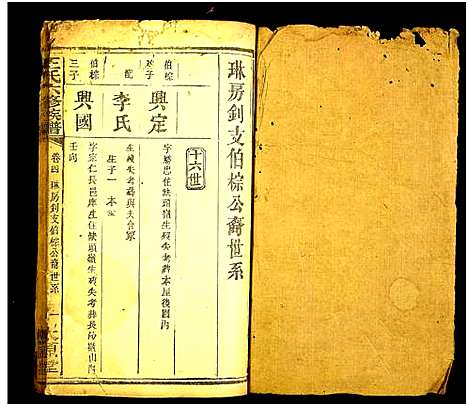 琳房釗支伯棕公裔世系
十六世
伯棕
次子
興定
字勝忠住缺頭嶺生歿失考葬本屋後園內
配
李氏
生歿失考葬與夫合冢
生子一 本
伯棕
三子
興國
字宗仁長邑庠生住缺頭嶺生歿失考葬長嶺山內
壬向
王氏六修族譜
卷四 琳房釗支伯棕公裔世系 一